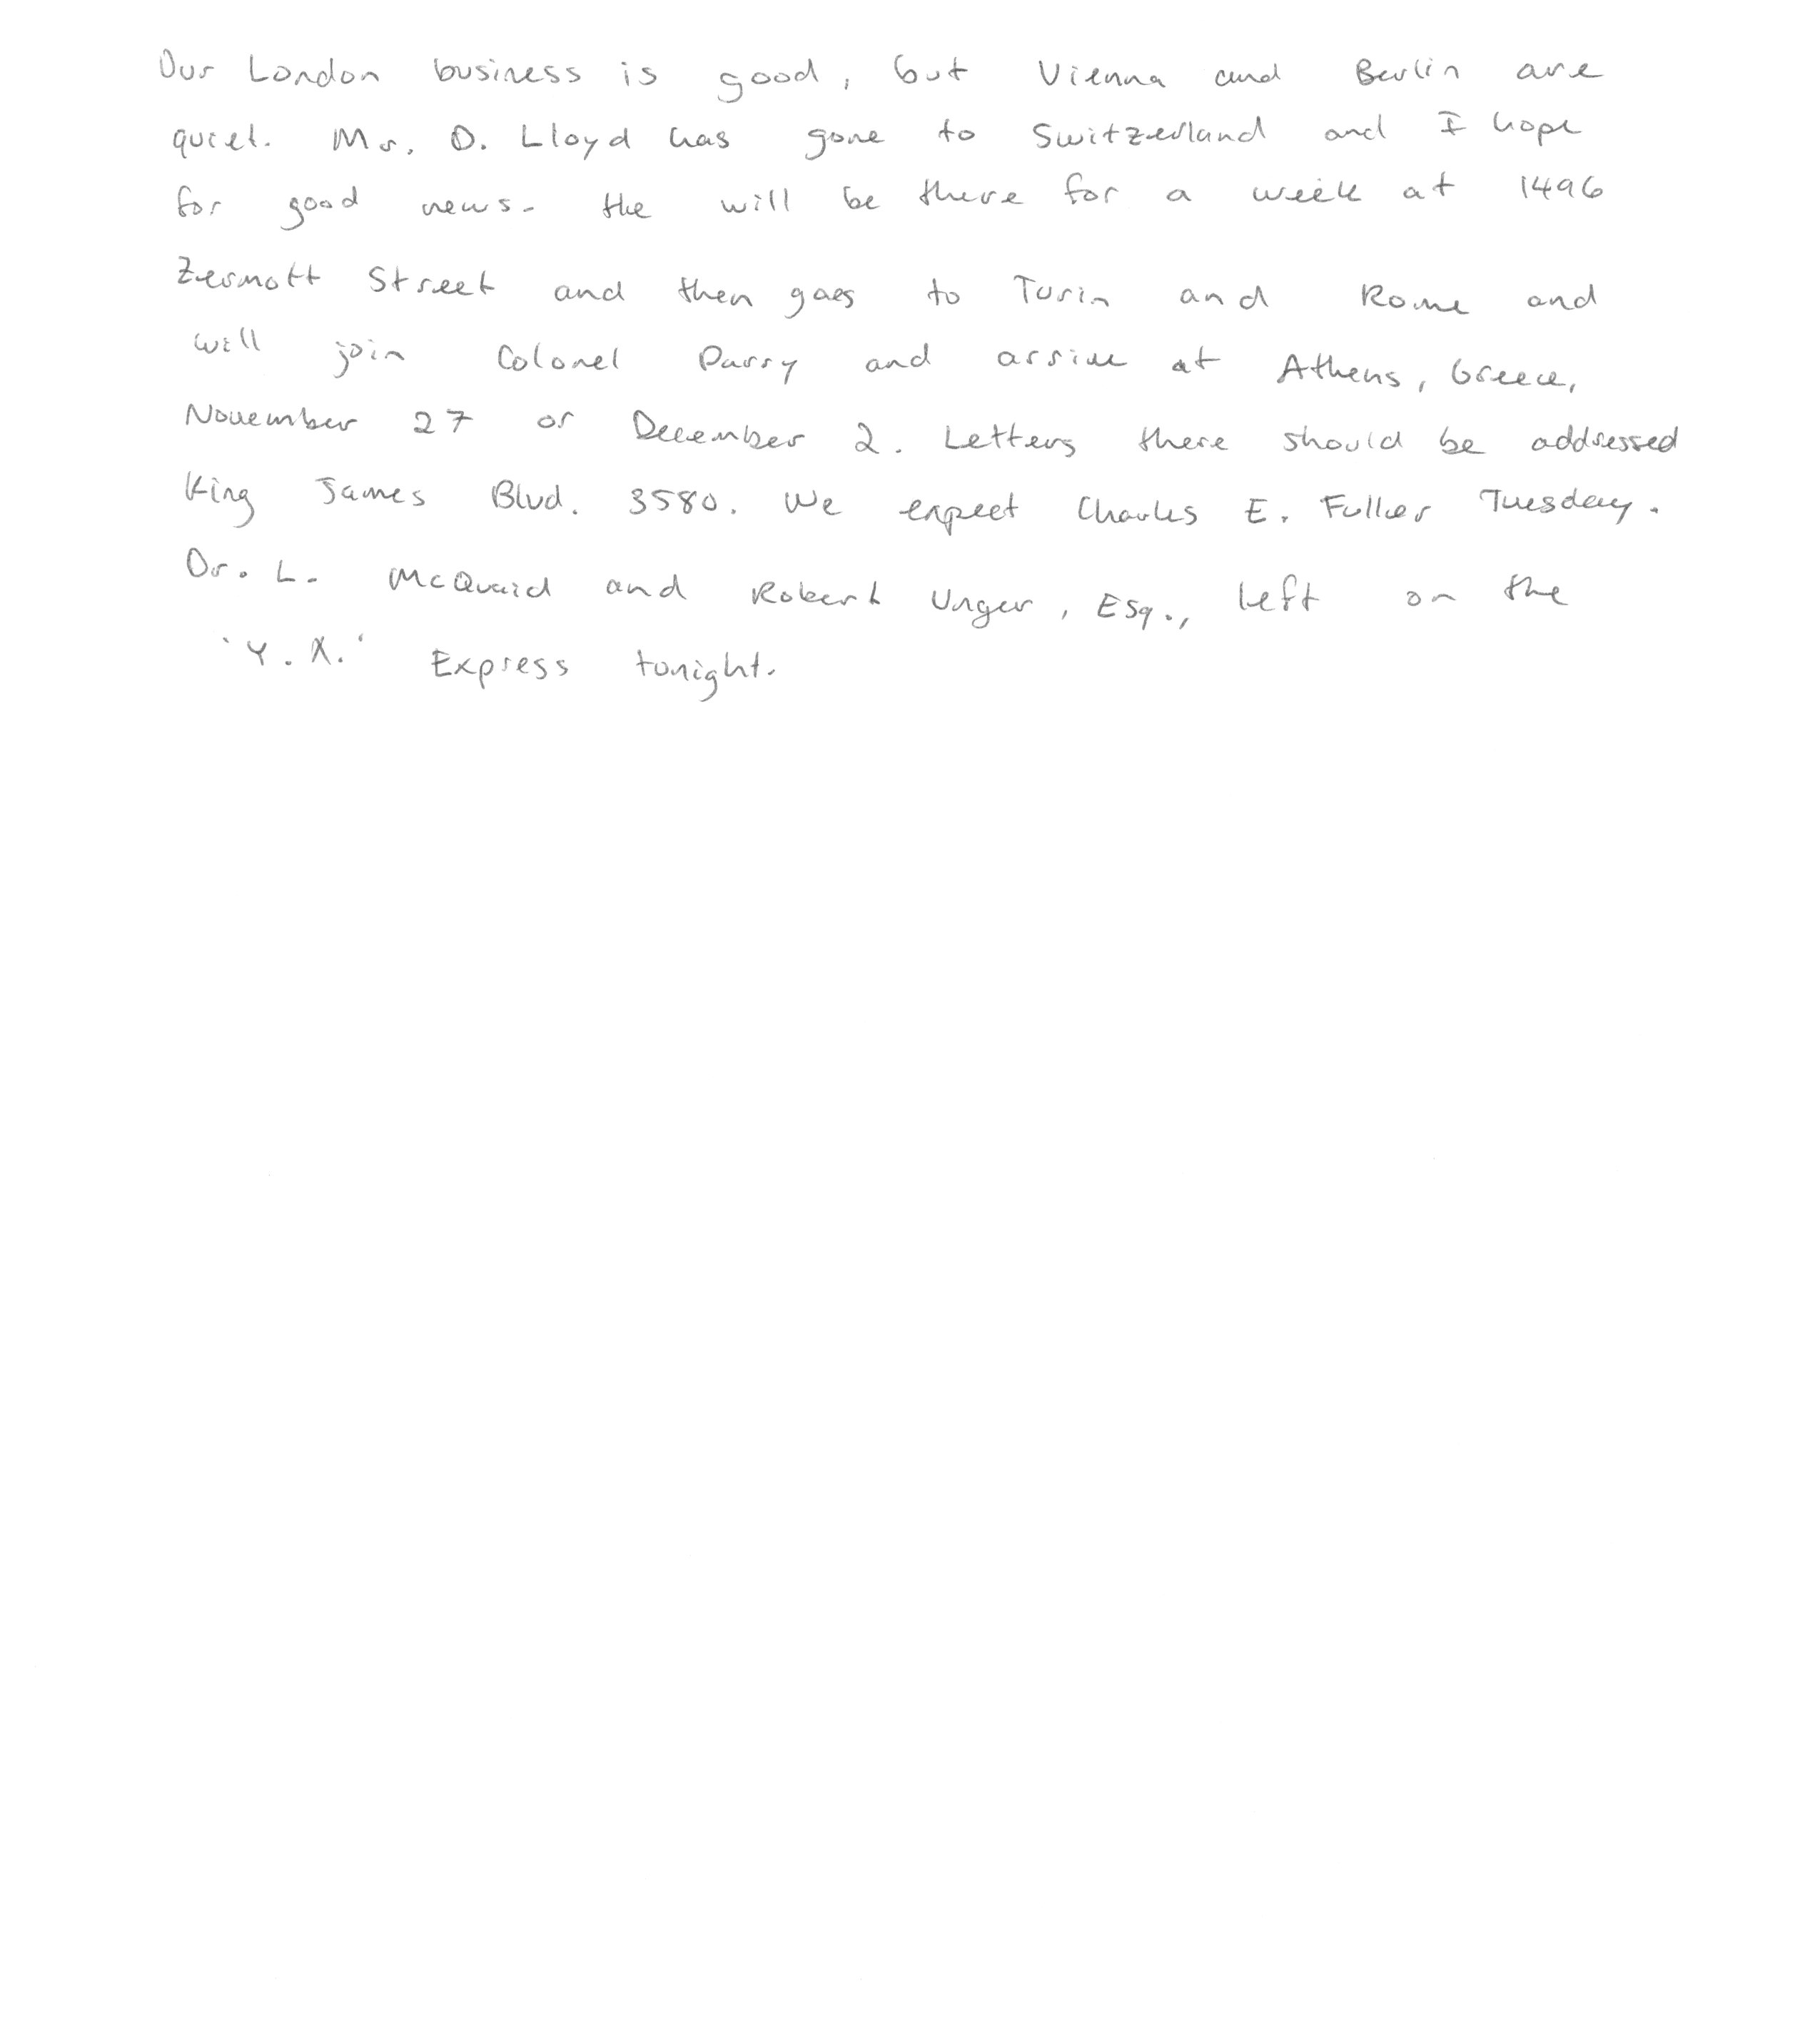 Our London business is good, but Vienna and Berlin are
quiet. Mr. D. Lloyd has gone to Switzerland and I hope
for good news. He will be there for a week at 1496
Zermott Street and then goes to Turin and Rome and
will join Colonel Parry and arrive at Athens, Greece,
November 27 or December 2. Letters there should be addressed
King James Blvd. 3580. We expect Charles E. Fuller Tuesday.
Dr. L. McQuaid and Robert Unger, Esq., left on the
'Y.X.' Express tonight.